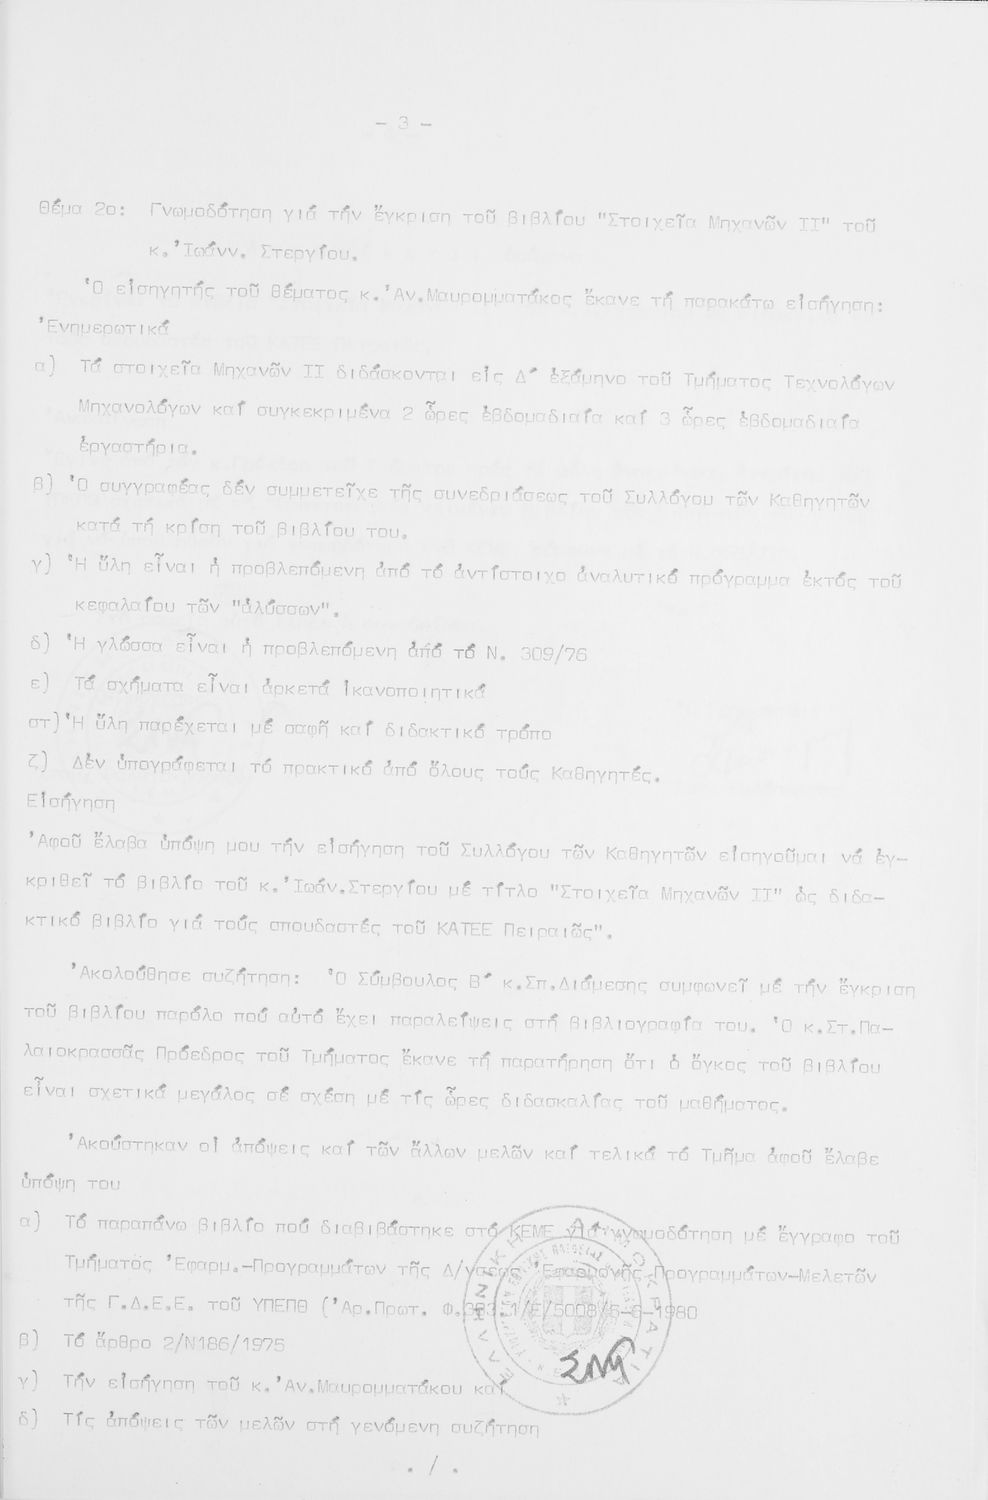 - 3 -
Θέμα 2ο: Γνωμοδότηση γιά τήν ἔγκριση τοῦ βιβλίου "Στοιχεῖα Μηχανῶν ΙΙ" τοῦ
κ.Ἰωάνν. Στεργίου.
Ὁ εἰσηγητής τοῦ θέματος κ.Ἀν.Μαυρομματάκος ἔκανε τή παρακάτω εἰσήγηση:
Ἐνημερωτικά
α) Τά στοιχεῖα Μηχανῶν ΙΙ διδάσκονται εἰς Δ΄ ἑξάμηνο τοῦ Τμήματος Τεχνολόγων
Μηχανολόγων καί συγκεκριμένα 2 ὧρες ἑβδομαδιαῖα καί 3 ὧρες ἑβδομαδιαῖα
ἐργαστήρια.
β) Ὁ συγγραφέας δέν συμμετεῖχε τῆς συνεδριάσεως τοῦ Συλλόγου τῶν Καθηγητῶν
κατά τή κρίση τοῦ βιβλίου του.
γ) Ἡ ὕλη εἶναι ἡ προβλεπόμενη ἀπό τό ἀντίστοιχο ἀναλυτικό πρόγραμμα ἐκτός τοῦ
κεφαλαίου τῶν "ἁλύσσων".
δ) Ἡ γλώσσα εἶναι ἡ προβλεπόμενη ἀπό τό Ν. 309/76
ε) Τά σχήματα εἶναι ἀρκετά ἱκανοποιητικά
στ) Ἡ ὕλη παρέχεται μέ σαφῆ καί διδακτικό τρόπο
ζ) Δέν ὑπογράφεται τό πρακτικό ἀπό ὅλους τούς Καθηγητές.
Εἰσήγηση
Ἀφοῦ ἔλαβα ὑπόψη μου τήν εἰσήγηση τοῦ Συλλόγου τῶν Καθηγητῶν εἰσηγοῦμαι νά ἐγ-
κριθεῖ τό βιβλίο τοῦ κ.Ἰωάν.Στεργίου μέ τίτλο "Στοιχεῖα Μηχανῶν ΙΙ" ὡς διδα-
κτικό βιβλίο γιά τούς σπουδαστές τοῦ ΚΑΤΕΕ Πειραιῶς".
Ἀκολούθησε συζήτηση: Ὁ Σύμβουλος Β΄ κ.Σπ.Διόμεσης συμφωνεῖ μέ τήν ἔγκριση
τοῦ βιβλίου παρόλο πού αὐτό ἔχει παραλείψεις στή βιβλιογραφία του. Ὁ κ.Στ.Πα-
λαιοκρασσᾶς Πρόεδρος τοῦ Τμήματος ἔκανε τή παρατήρηση ὅτι ὁ ὄγκος τοῦ βιβλίου
εἶναι σχετικά μεγάλος σέ σχέση μέ τίς ὧρες διδασκαλίας τοῦ μαθήματος.
Ἀκούστηκαν οἱ ἀπόψεις καί τῶν ἄλλων μελῶν καί τελικά τό Τμῆμα ἀφοῦ ἔλαβε
ὑπόψη του
α) Τό παραπάνω βιβλίο πού διαβιβάστηκε στό ΚΕΜΕ γιά γνωμοδότηση μέ ἔγγραφο τοῦ
Τμήματος Ἐφαρμ.-Προγραμμάτων τῆς Δ/νσεως Ἐφαρμογῆς Προγραμμάτων-Μελετῶν
τῆς Γ.Δ.Ε.Ε. τοῦ ΥΠΕΠΘ (Ἀρ.Πρωτ. Φ.383.1/Ε/5008/5-6-1980
β) Τό ἄρθρο 2/Ν186/1975
γ) Τήν εἰσήγηση τοῦ κ.Ἀν.Μαυρομματάκου καί
δ) Τίς ἀπόψεις τῶν μελῶν στή γενόμενη συζήτηση
ΕΛΛΗΝΙΚΗ ΔΗΜΟΚΡΑΤΙΑ
. / .